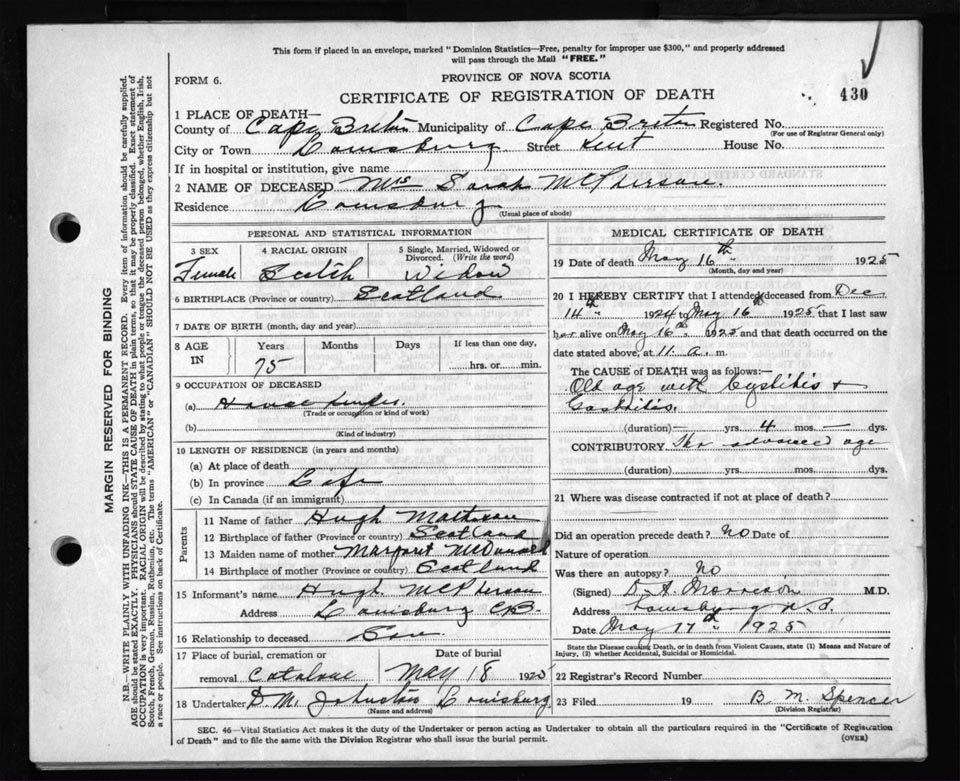 This form if placed in an envelope, marked "Dominion Statistics—Free, penalty for improper use $300," and properly addressed
will pass through the Mail "FREE."
FORM 6.
PROVINCE OF NOVA SCOTIA
CERTIFICATE OF REGISTRATION OF DEATH
430
1 PLACE OF DEATH—
County of Cape Breton Municipality of Cape Breton Registered No.
(For use of Registrar General only)
City or Town Louisburg Street Kent House No.
If in hospital or institution, give name
2 NAME OF DECEASED Mrs Sarah McPherson.
Residence Louisburg
(Usual place of abode)
PERSONAL AND STATISTICAL INFORMATION
3 SEX 4 RACIAL ORIGIN 5 Single, Married, Widowed or
Divorced. (Write the word)
Female Scotch Widow
6 BIRTHPLACE (Province or country) Scotland
7 DATE OF BIRTH (month, day and year)
8 AGE IN Years Months Days If less than one day,
75 hrs. or min.
9 OCCUPATION OF DECEASED
(a) House Keeper
(Trade or occupation or kind of work)
(b)
(Kind of industry)
10 LENGTH OF RESIDENCE (in years and months)
(a) At place of death
(b) In province Life
(c) In Canada (if an immigrant)
Parents
11 Name of father Hugh Matheson
12 Birthplace of father (Province or country) Scotland
13 Maiden name of mother Margaret McDonald
14 Birthplace of mother (Province or country) Scotland
15 Informant's name Hugh McPherson
Address Louisburg C.B.
16 Relationship to deceased Son
17 Place of burial, cremation or Date of burial
removal Catalone May 18 1925
18 Undertaker D. M. Johnston Louisburg
(Name and address)
MEDICAL CERTIFICATE OF DEATH
19 Date of death May 16th 1925
(Month, day and year)
20 I HEREBY CERTIFY that I attended deceased from Dec
14th 1924 to May 16th 1925 that I last saw
her alive on May 16th 1925 and that death occurred on the
date stated above, at 11. a. m.
The CAUSE of DEATH was as follows:—
Old age with Cystitis &
Gastritis.
(duration) — yrs. 4 mos. — dys.
CONTRIBUTORY Her advanced age
(duration) yrs. mos. dys.
21 Where was disease contracted if not at place of death?
Did an operation precede death? No Date of
Nature of operation
Was there an autopsy? No
(Signed) D. A. Morrison M.D.
Address Louisburg N.S.
Date May 17th 1925
State the Disease causing Death, or in death from Violent Causes, state (1) Means and Nature of
Injury, (2) whether Accidental, Suicidal or Homicidal.
22 Registrar's Record Number
23 Filed 19 B. M. Spencer
(Division Registrar)
SEC. 46—Vital Statistics Act makes it the duty of the Undertaker or person acting as Undertaker to obtain all the particulars required in the "Certificate of Registration
of Death" and to file the same with the Division Registrar who shall issue the burial permit.
(OVER)
MARGIN RESERVED FOR BINDING
N.B.—WRITE PLAINLY WITH UNFADING INK—THIS IS A PERMANENT RECORD. Every item of information should be carefully supplied.
AGE should be stated EXACTLY. PHYSICIANS should STATE CAUSE OF DEATH in plain terms, so that it may be properly classified. Exact statement of
OCCUPATION is very important. RACIAL ORIGIN will be described by stating to what people or tongue the deceased person belonged, whether English, Irish,
Scotch, French, German, Russian, Ruthenian, etc. The terms "AMERICAN" or "CANADIAN" SHOULD NOT BE USED as they express citizenship but not
a race or people. See instructions on back of Certificate.